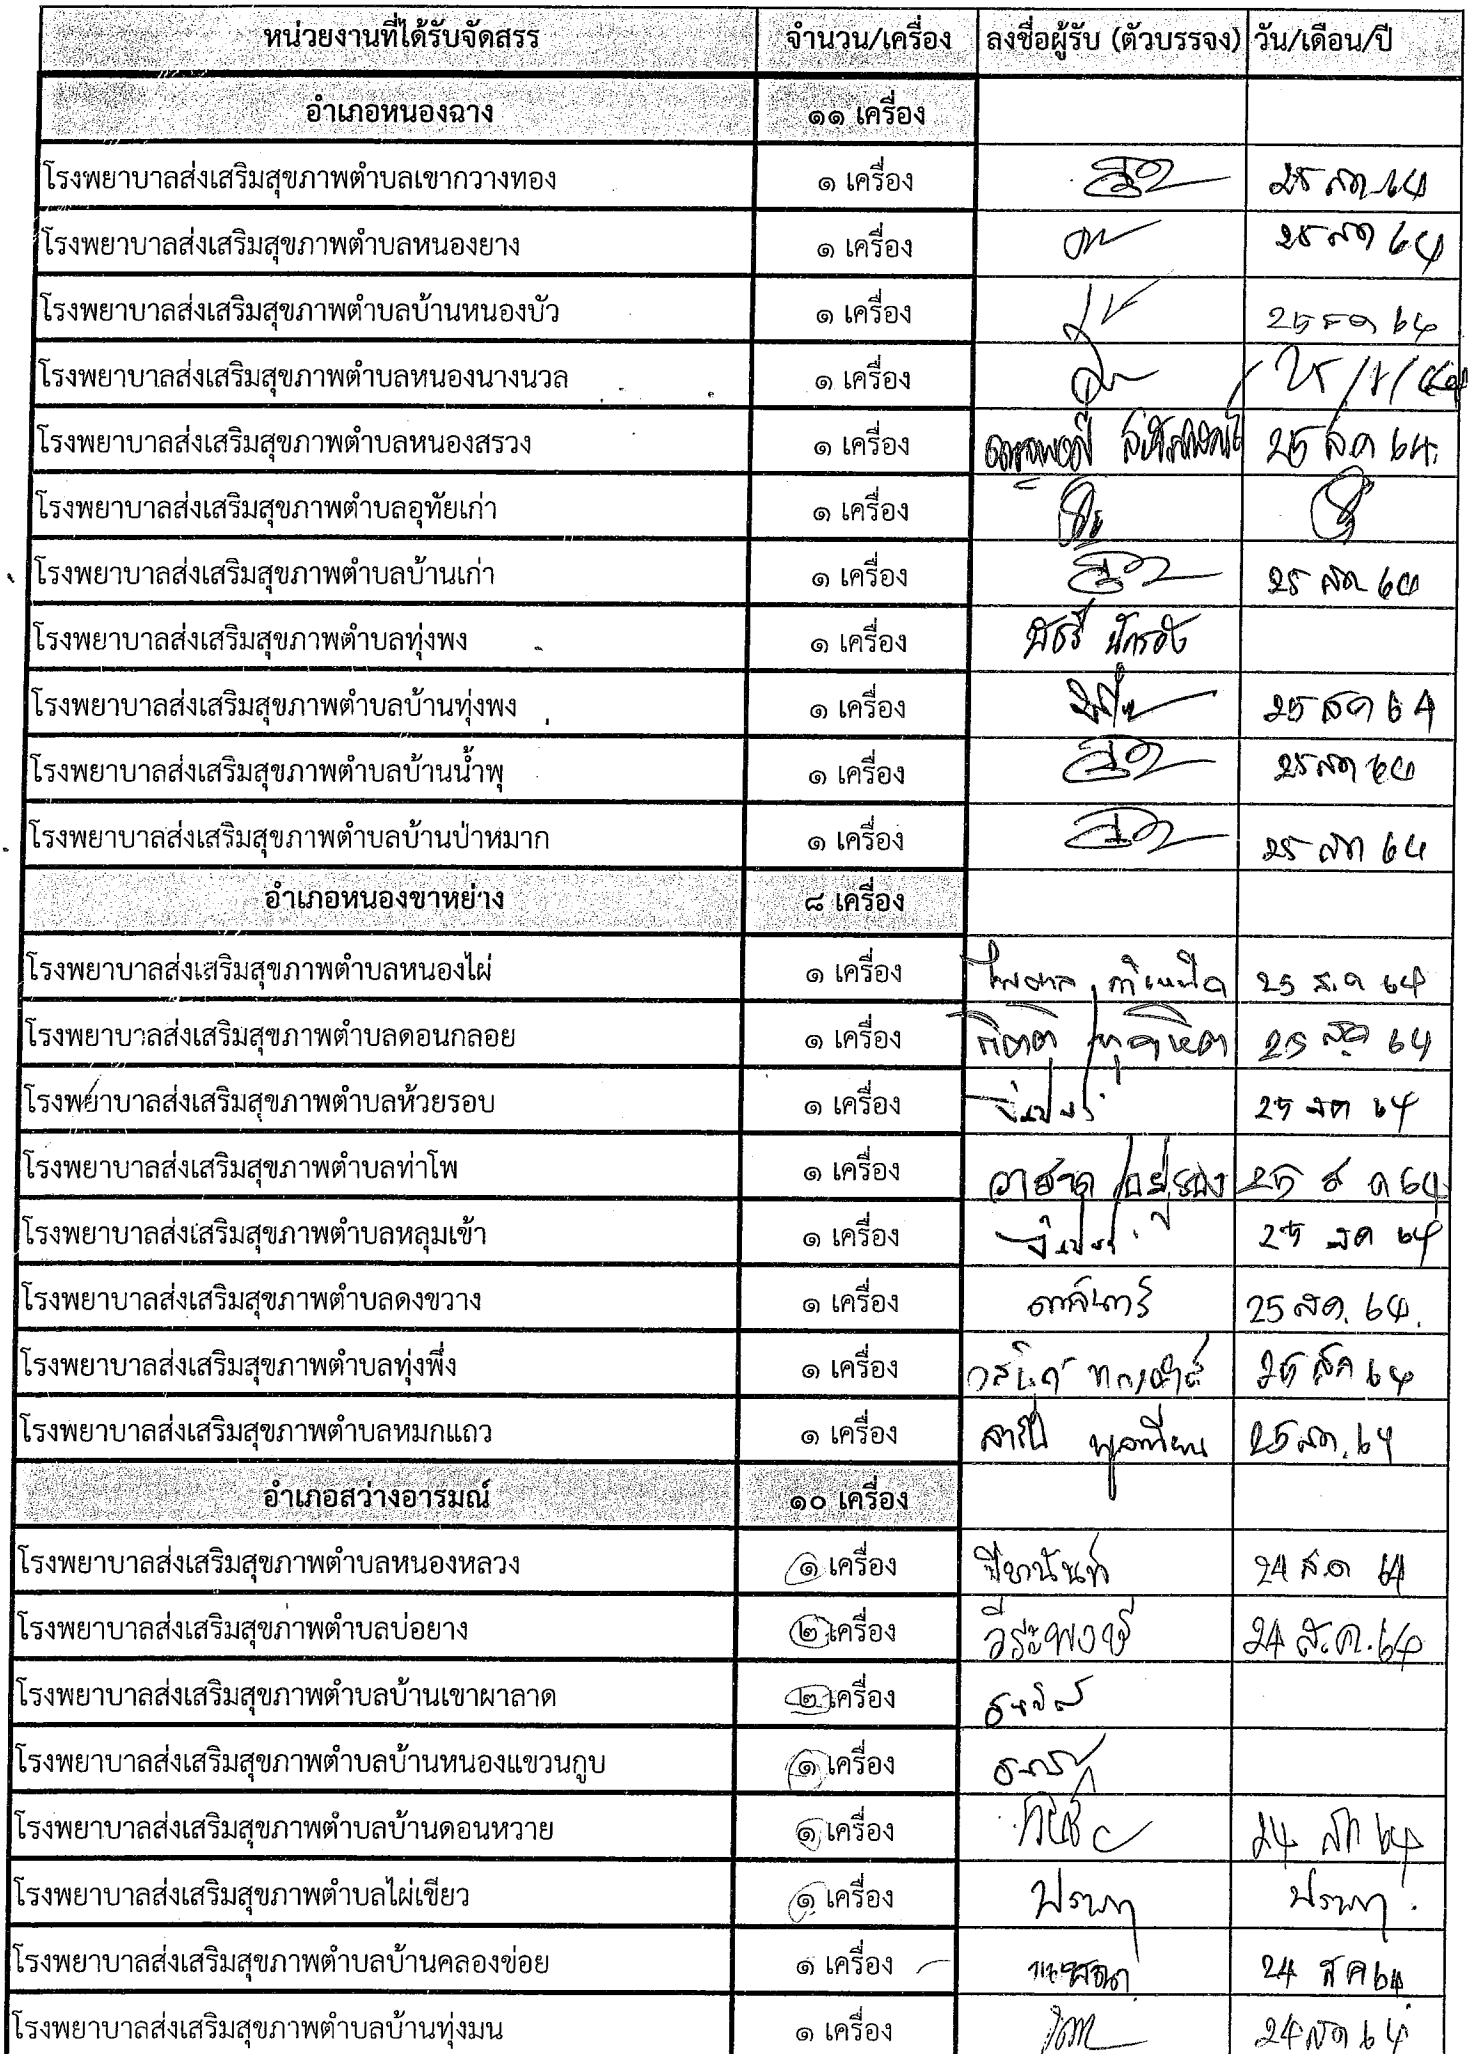 หน่วยงานที่ได้รับจัดสรร จำนวน/เครื่อง ลงชื่อผู้รับ (ตัวบรรจง) วัน/เดือน/ปี
อำเภอหนองฉาง ๑๑ เครื่อง
โรงพยาบาลส่งเสริมสุขภาพตำบลเขากวางทอง ๑ เครื่อง 25 สค 64
โรงพยาบาลส่งเสริมสุขภาพตำบลหนองยาง ๑ เครื่อง 25 สค 64
โรงพยาบาลส่งเสริมสุขภาพตำบลบ้านหนองบัว ๑ เครื่อง 25 สค 64
โรงพยาบาลส่งเสริมสุขภาพตำบลหนองนางนวล ๑ เครื่อง
โรงพยาบาลส่งเสริมสุขภาพตำบลหนองสรวง ๑ เครื่อง 25 สค 64.
โรงพยาบาลส่งเสริมสุขภาพตำบลอุทัยเก่า ๑ เครื่อง
โรงพยาบาลส่งเสริมสุขภาพตำบลบ้านเก่า ๑ เครื่อง 25 สค 64
โรงพยาบาลส่งเสริมสุขภาพตำบลทุ่งพง ๑ เครื่อง
โรงพยาบาลส่งเสริมสุขภาพตำบลบ้านทุ่งพง ๑ เครื่อง 25 สค 64
โรงพยาบาลส่งเสริมสุขภาพตำบลบ้านน้ำพุ ๑ เครื่อง 25 สค 64
โรงพยาบาลส่งเสริมสุขภาพตำบลบ้านป่าหมาก ๑ เครื่อง 25 สค 64
อำเภอหนองขาหย่าง ๘ เครื่อง
โรงพยาบาลส่งเสริมสุขภาพตำบลหนองไผ่ ๑ เครื่อง 25 ส.ค 64
โรงพยาบาลส่งเสริมสุขภาพตำบลดอนกลอย ๑ เครื่อง 25 สค 64
โรงพยาบาลส่งเสริมสุขภาพตำบลห้วยรอบ ๑ เครื่อง 25 สค 64
โรงพยาบาลส่งเสริมสุขภาพตำบลท่าโพ ๑ เครื่อง 25 ส ค 64
โรงพยาบาลส่งเสริมสุขภาพตำบลหลุมเข้า ๑ เครื่อง 25 สค 64
โรงพยาบาลส่งเสริมสุขภาพตำบลดงขวาง ๑ เครื่อง 25 สค. 64.
โรงพยาบาลส่งเสริมสุขภาพตำบลทุ่งพึ่ง ๑ เครื่อง 25 สค 64
โรงพยาบาลส่งเสริมสุขภาพตำบลหมกแถว ๑ เครื่อง 25 สค. 64
อำเภอสว่างอารมณ์ ๑๐ เครื่อง
โรงพยาบาลส่งเสริมสุขภาพตำบลหนองหลวง ๑ เครื่อง 24 ส.ค 64
โรงพยาบาลส่งเสริมสุขภาพตำบลบ่อยาง ๒ เครื่อง วีระพงษ์ 24 ส.ค. 64
โรงพยาบาลส่งเสริมสุขภาพตำบลบ้านเขาผาลาด ๒ เครื่อง
โรงพยาบาลส่งเสริมสุขภาพตำบลบ้านหนองแขวนกูบ ๑ เครื่อง
โรงพยาบาลส่งเสริมสุขภาพตำบลบ้านดอนหวาย ๑ เครื่อง 24 สค 64
โรงพยาบาลส่งเสริมสุขภาพตำบลไผ่เขียว ๑ เครื่อง
โรงพยาบาลส่งเสริมสุขภาพตำบลบ้านคลองข่อย ๑ เครื่อง 24 สค 64
โรงพยาบาลส่งเสริมสุขภาพตำบลบ้านทุ่งมน ๑ เครื่อง 24 สค 64